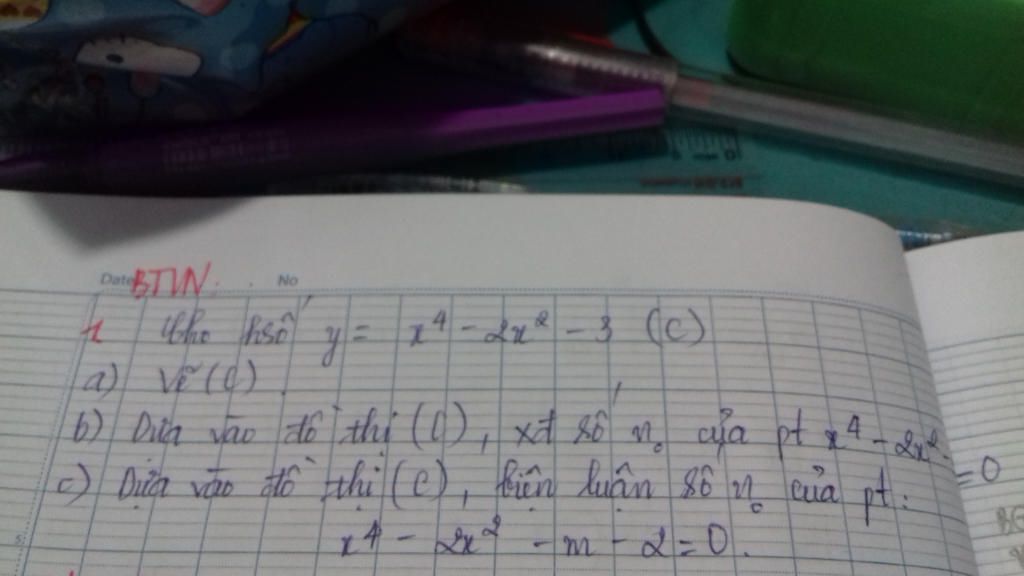 Date BTVN: No
1 Cho hsố y = x⁴ - 2x² - 3 (C)
a) Vẽ (C).
b) Dựa vào đồ thị (C), xđ số n₀ của pt x⁴ - 2x² -
= 0
c) Dựa vào đồ thị (C), biện luận số n₀ của pt:
x⁴ - 2x² - m - 2 = 0.